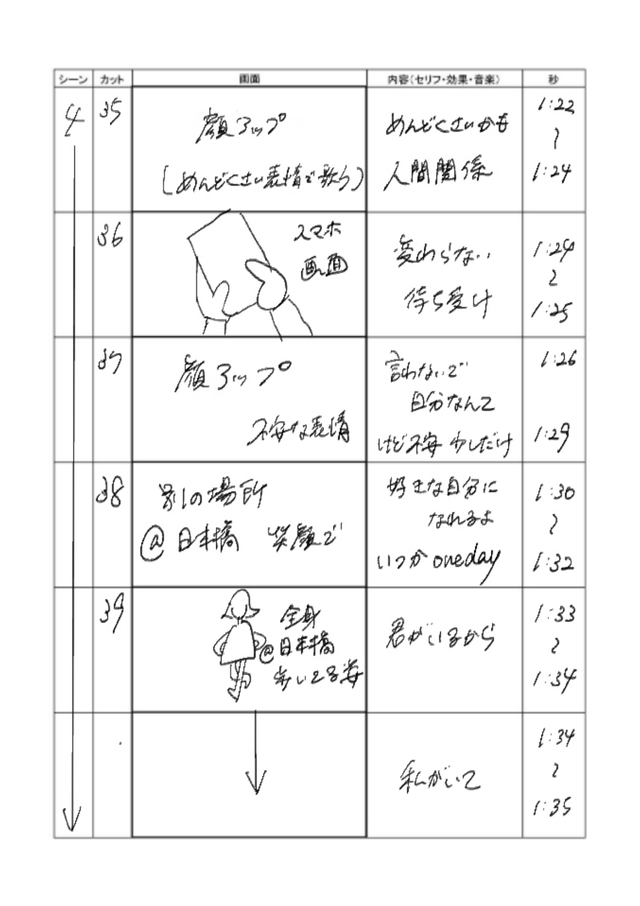 シーン カット 画面 内容(セリフ・効果・音楽) 秒
4 35
顔アップ
(めんどくさい表情で歌う)
めんどくさいかも
人間関係
1:22
~
1:24
36
スマホ
画面
変わらない
待ち受け
1:24
~
1:25
37
顔アップ
不安な表情
言わないで
自分なんて
けど不安 少しだけ
1:26
1:29
38
別の場所
@日本橋 笑顔で
好きな自分に
なれるよ
いつか oneday
1:30
~
1:32
39
全身
@日本橋
歩いてる姿
君がいるから
1:33
~
1:34
私がいて
1:34
~
1:35